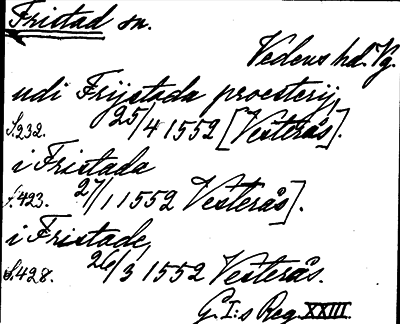 Fristad sn.
Vedens hd. Vg.
udi Frijstada proesterij,
S. 232. 25/4 1552 [Vesterås].
i Fristada
S. 423. 27/1 1552 Vesterås].
i Fristade,
S. 428. 26/3 1552 Vesterås.
G. I:s Reg XXIII.